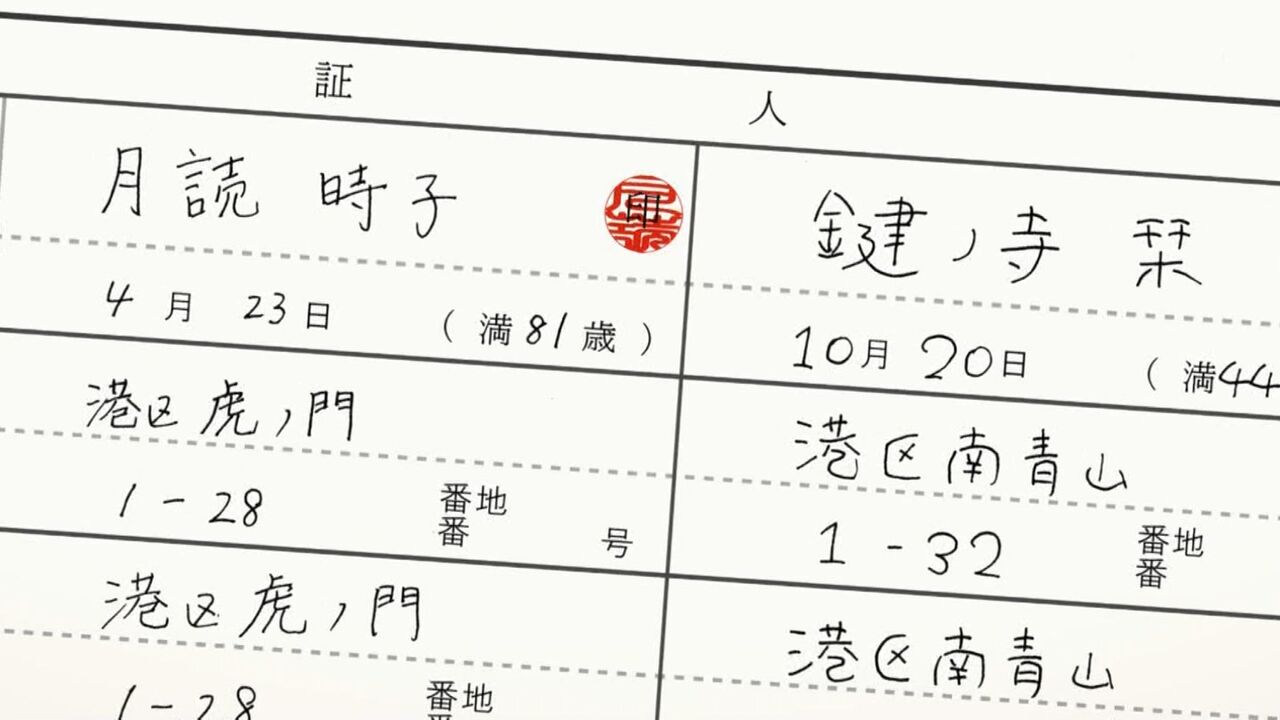 証人
月読 時子 印
4月 23日 (満81歳)
港区虎ノ門
1-28 番地
番 号
港区虎ノ門
1-28 番地
鍵ノ寺 栞
10月 20日 (満44
港区南青山
1-32 番地
番
港区南青山